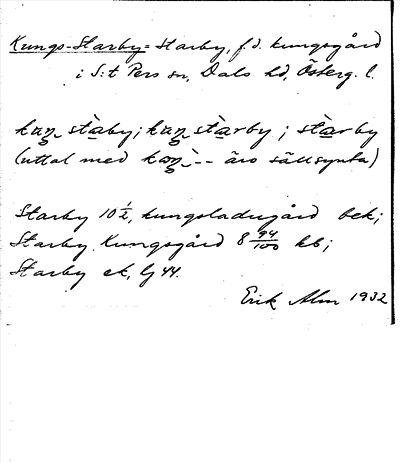 Kungs-Starby = Starby, f.d. kungsgård
i S:t Pers sn, Dals hd, Österg. l.
stàby; stàrby; stàrby
(uttal med äro sällsynta)
Starby 10 1/2, kungsladugård bek;
Starby Kungsgård 8 94/100 kb;
Starby ek, Lj 44.
Erik Alm 1932